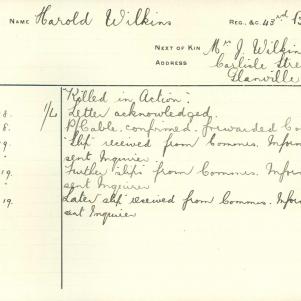 NAME Harold Wilkins REG. &C. 43rd B
NEXT OF KIN Mr J. Wilkin
ADDRESS Carlisle Stre
Glanville
"Killed in Action".
8. 1/L Letter acknowledged.
8. P/Cable. confirmed. forwarded Co
19. "Slip" received from Commis. Infor
sent Inquirer
19. Further "slips" from Commis. Infor
sent Inquirer
19 Later slip received from Commis. Info
sent Inquirer